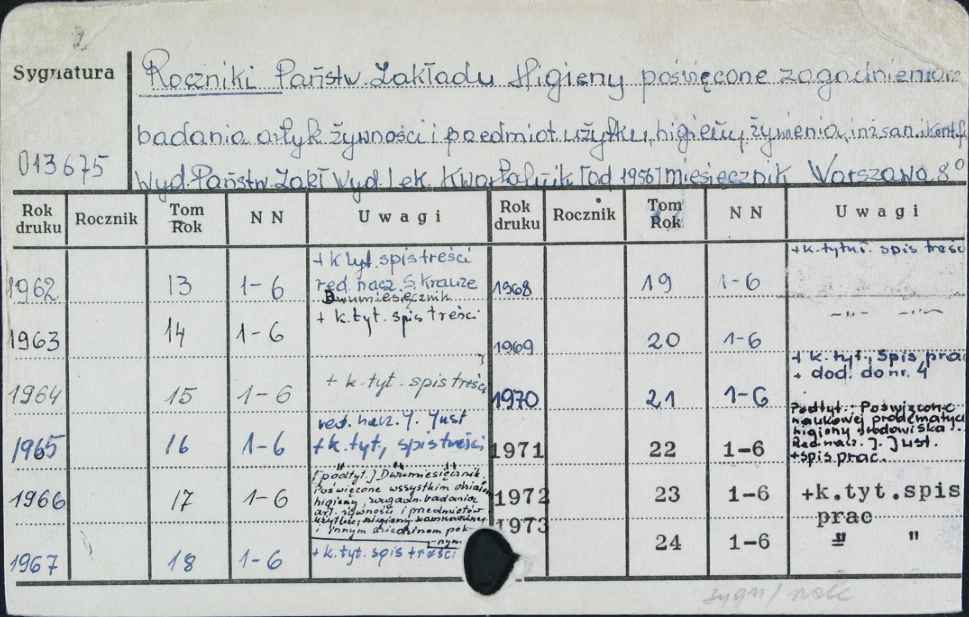 Sygnatura
Roczniki Państw. Zakładu Higieny poświęcone zagadnieniom
badania artyk. żywności i przedmiot. użytku, higieny żywienia, inż. san. i
013675
Wyd. Państw. Zakł. Wyd. Lek. Kwartalnik [od 1956] miesięcznik Warszawa 8°
Rok druku Rocznik Tom Rok N N Uwagi Rok druku Rocznik Tom Rok N N Uwagi
1962 13 1-6 + k. tyt. spis treści
red. nacz. S. Krauze
Dwumiesięcznik
1963 14 1-6 + k. tyt. spis treści
1964 15 1-6 + k. tyt. spis treści
1965 16 1-6 red. nacz. J. Just
+ k. tyt, spis treści
1966 17 1-6 [podtyt.] Dwumiesięcznik.
Poświęcone wszystkim
higieny, zagadn. badania
art. żywności i przedmiotów
użytku, higieny
i innym dziedzinom pok-
nym
1967 18 1-6 + k. tyt. spis treści
1968 19 1-6 + k. tytuł. spis treści
1969 20 1-6 -"- -"-
1970 21 1-6 + k. tyt., spis prac
+ dod. do nr. 4
1971 22 1-6 Podtyt.: Poświęcone
naukowej problematyce
higieny środowiska.
Red. nacz. J. Just.
+ spis prac.
1972 23 1-6 +k.tyt.spis
prac
1973 24 1-6 " "